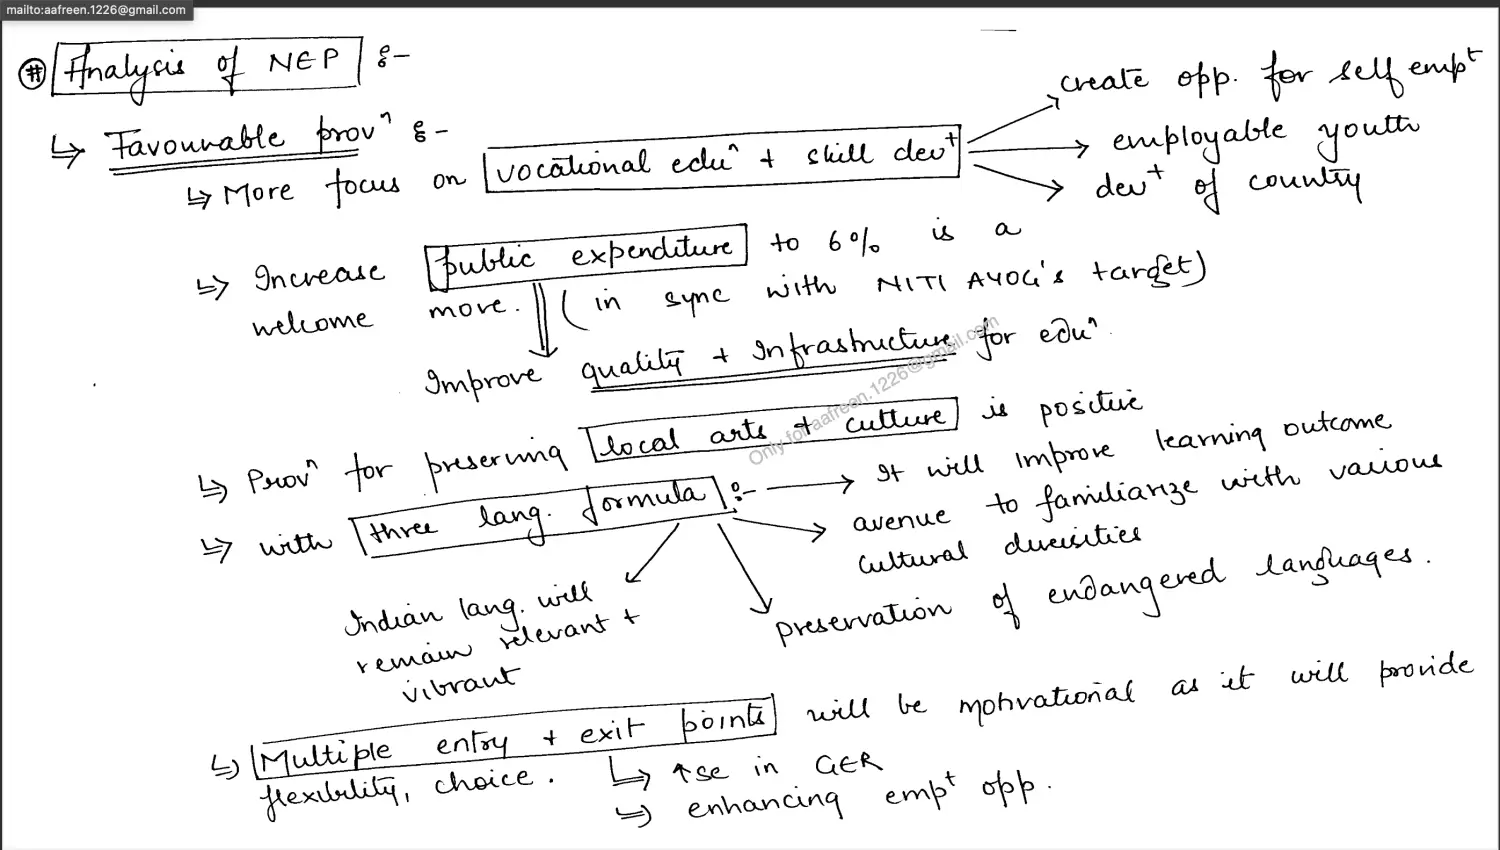 mailto:aafreen.1226@gmail.com
# Analysis of NEP :-
↳ Favourable provⁿ :-
↳ More focus on vocational eduⁿ + skill devᵗ
→ create opp. for self empᵗ
→ employable youth
→ devᵗ of country
↳ Increase public expenditure to 6% is a
welcome move. (in sync with NITI AYOG's target)
Improve quality + Infrastructure for eduⁿ.
↳ Provⁿ for preserving local arts + culture is positive
↳ with three lang. formula :- → It will improve learning outcome
→ avenue to familiarize with various
cultural diversities
Indian lang. will
remain relevant +
vibrant
preservation of endangered languages.
↳ Multiple entry + exit points will be motivational as it will provide
flexibility, choice. ↳ ↑se in GER
↳ enhancing empᵗ opp.
Only for aafreen.1226@gmail.com